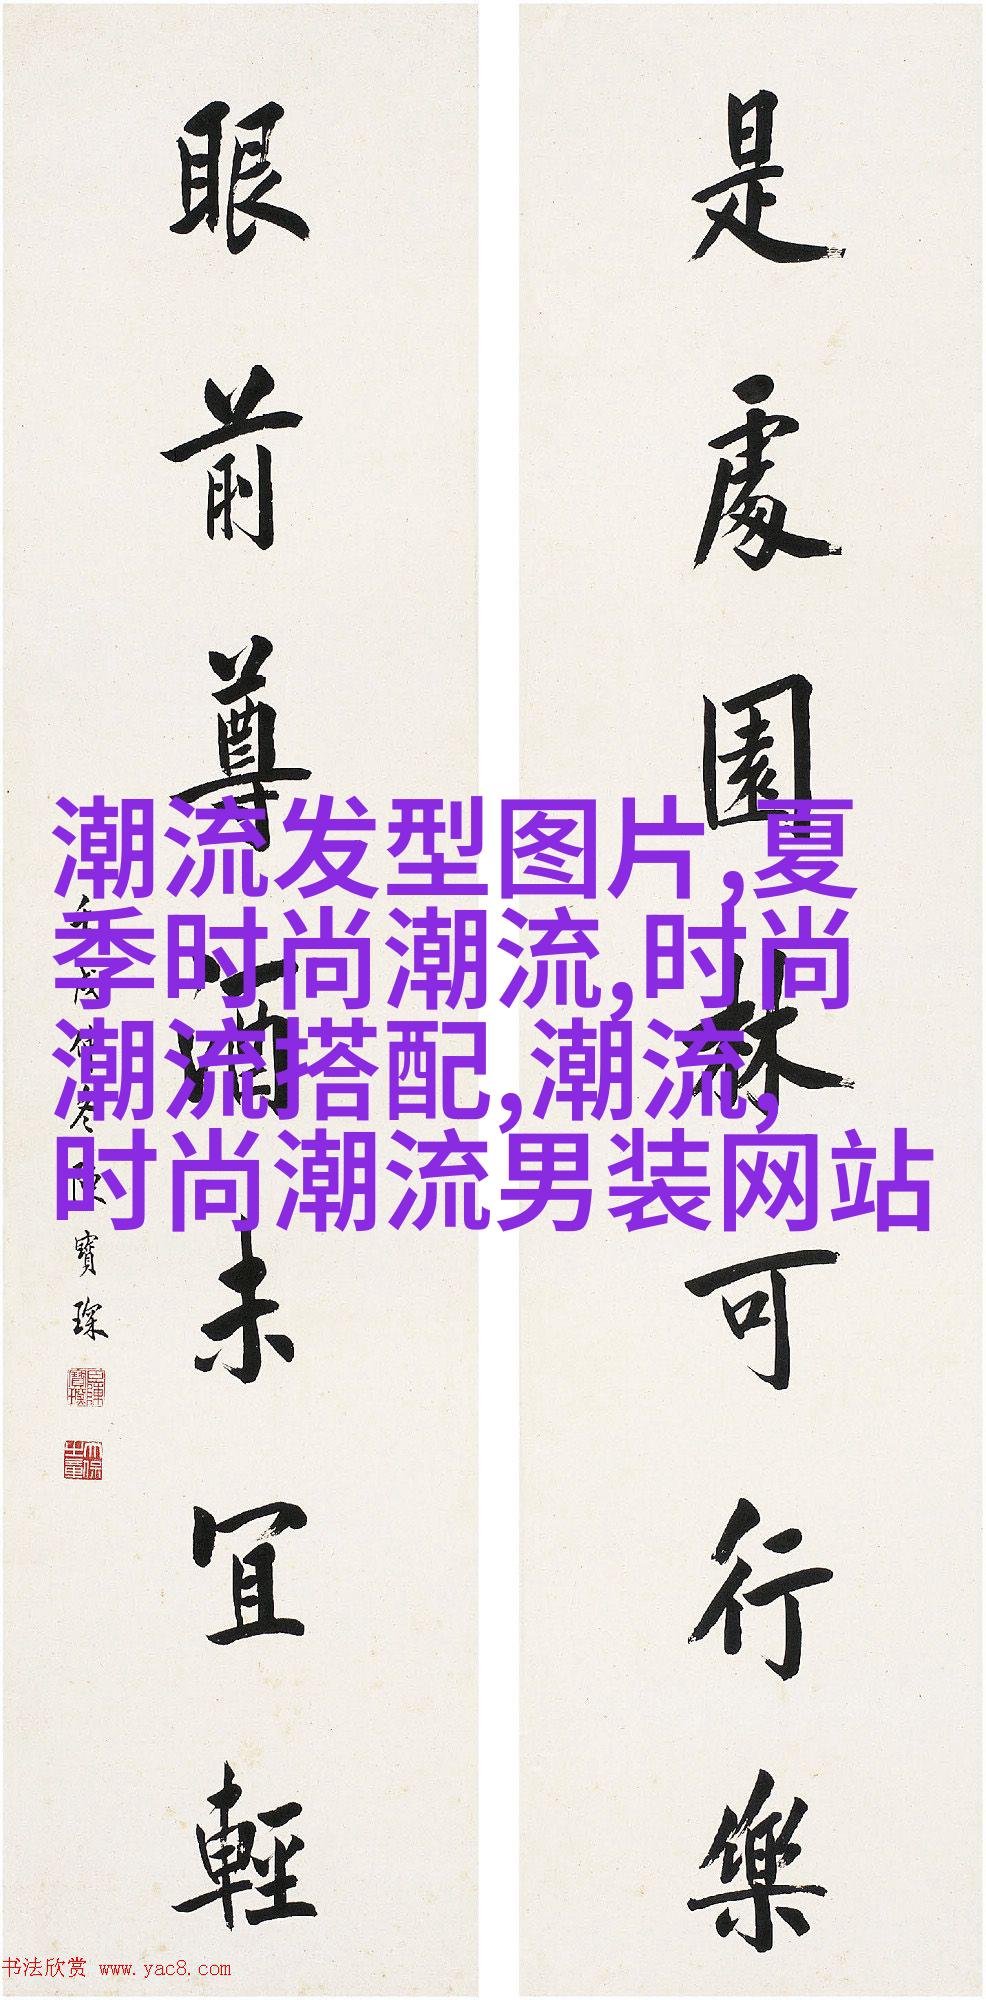 是處園林可行樂
眼前尊酒未宜輕
壬戌仲冬陳寶琛
潮流发型图片,夏
季时尚潮流,时尚
潮流搭配,潮流,
时尚潮流男装网站
书法欣赏 www.yac8.com